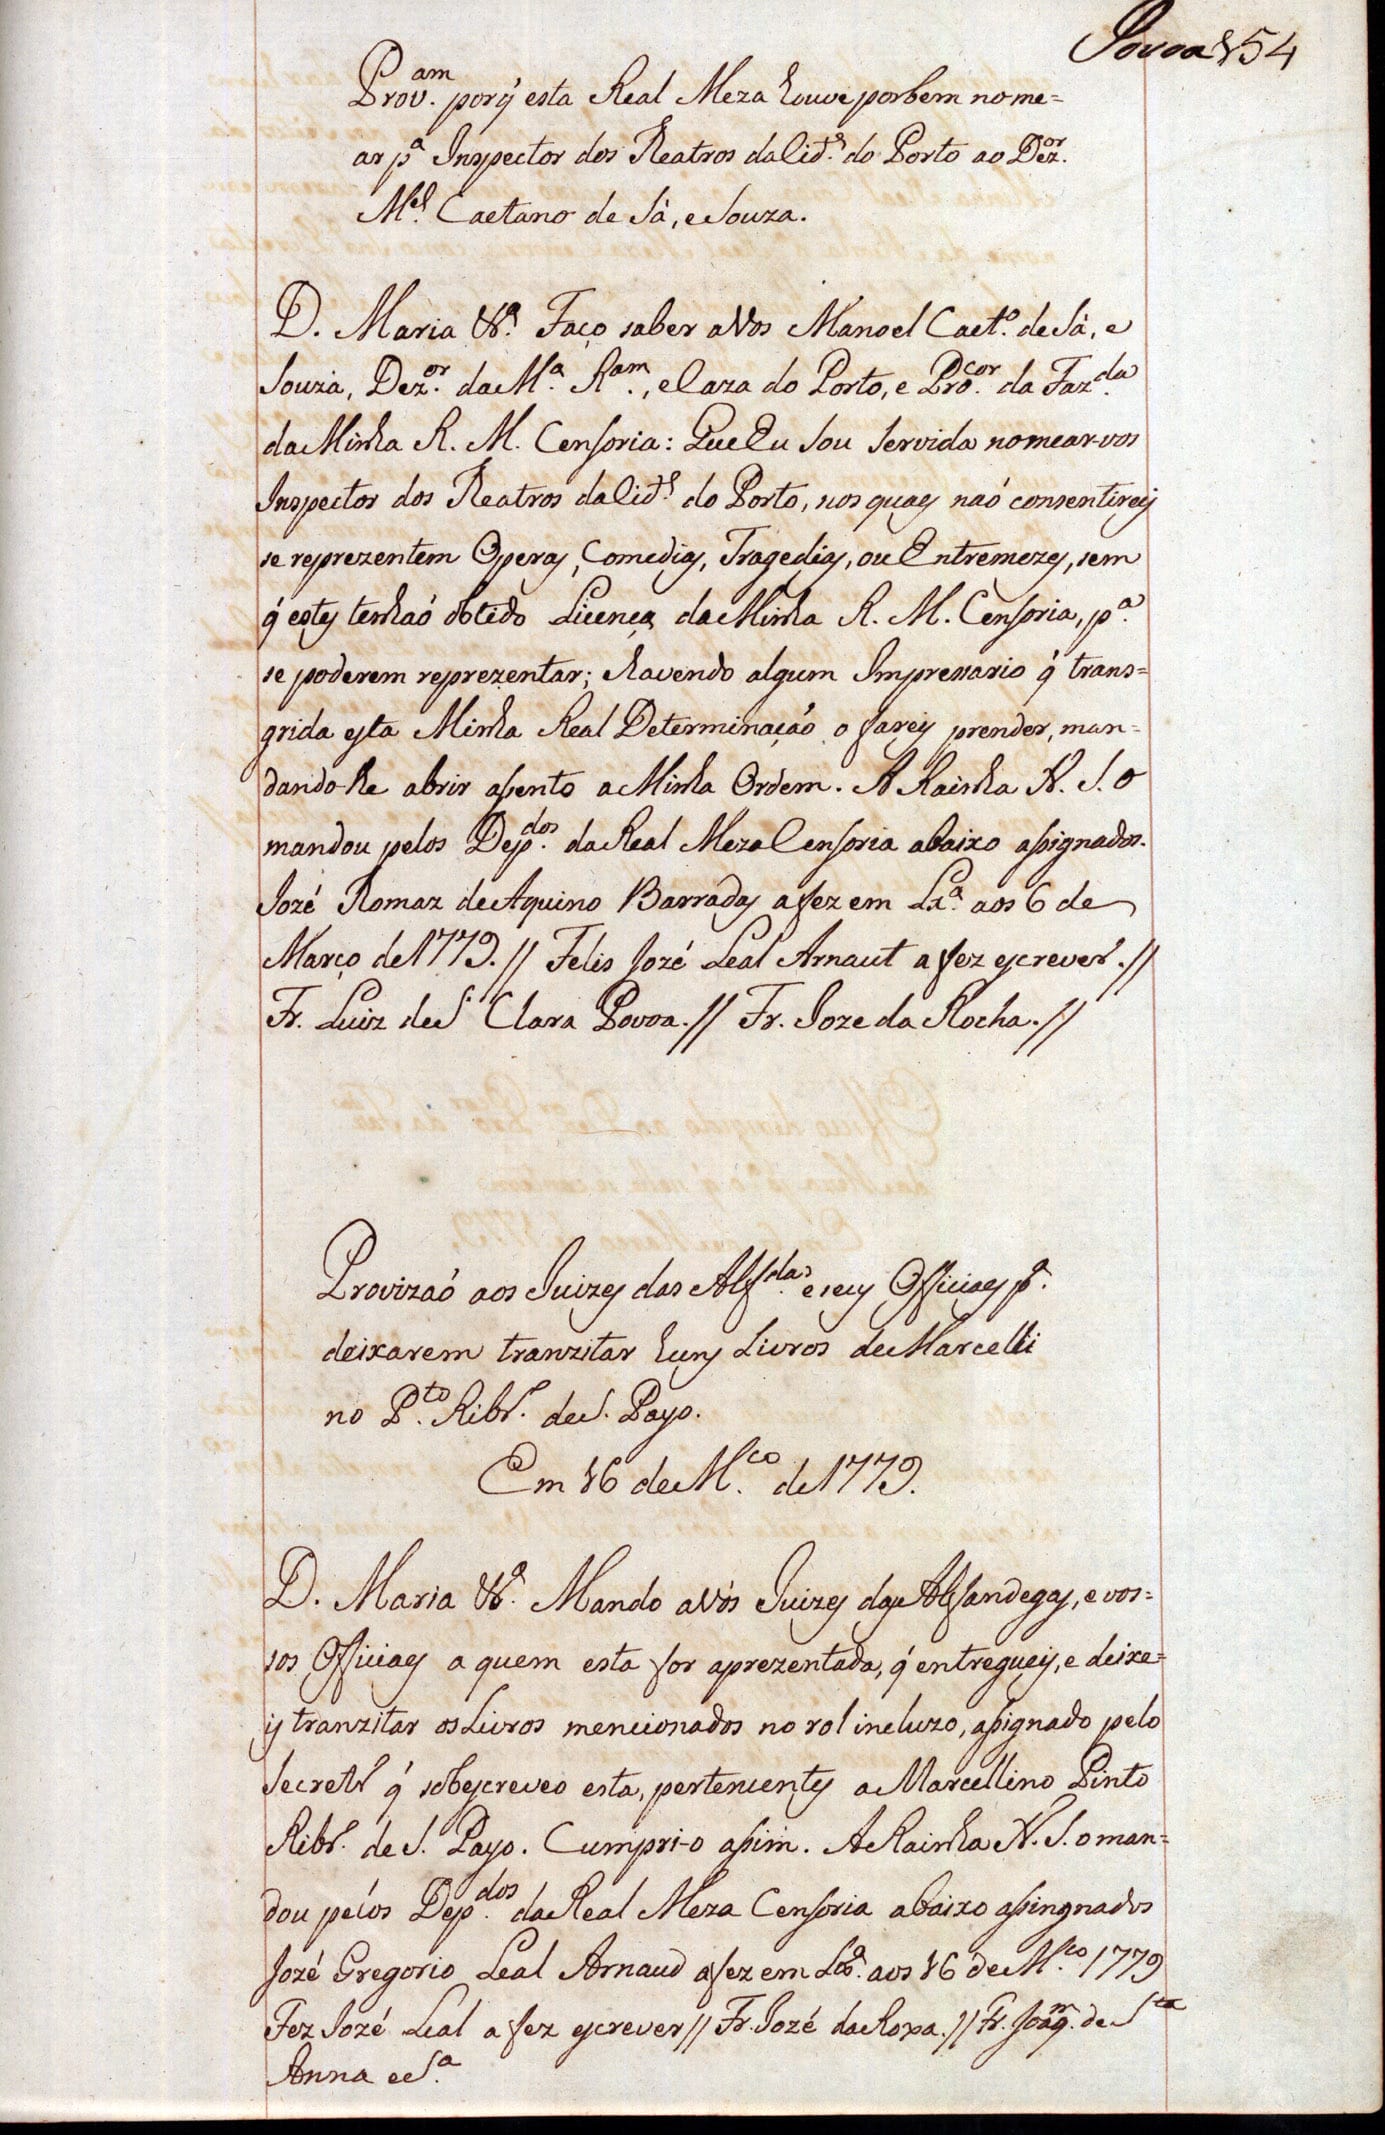 Povoa 154
Prov.am porq̃ esta Real Meza houve por bem nome=
ar p.a Inspector dos Theatros da Cid.e do Porto ao Dez.or
M.el Caetano de Sá, e Souza.
D. Maria &.a Faço saber a Vós Manoel Caet.o de Sá, e
Souza, Dez.or da M.a R.am, e Caza do Porto, e Pro.cor da Faz.da
da Minha R. M. Censoria: Que Eu Sou Servida nomear-vos
Inspector dos Theatros da Cid.e do Porto, nos quaes naõ consentireis
se reprezentem Operas, Comedias, Tragedias, ou Entremezes, sem
q̃ estes tenhaõ obtido Licença da Minha R. M. Censoria, p.a
se poderem reprezentar; havendo algum Impressario q̃ trans=
grida esta Minha Real Determinaçaõ o fareis prender, man=
dando-lhe abrir assento a Minha Ordem. A Rainha N. S. o
mandou pelos Dep.dos da Real Meza Censoria abaixo assignados.
Jozé Thomaz de Aquino Barradas a fez em Lx.a aos 6 de
Março de 1779. // Felis Jozé Leal Arnaut a fez escrever. //
Fr. Luiz de S. Clara Povoa. // Fr. Joze da Rocha. //
Provizaõ aos Juizes das Alf.das e seus Officiaes p.a
deixarem tranzitar huns Livros de Marcelli
no P.to Ribr.o de S. Payo.
Em 16 de M.co de 1779.
D. Maria &.a Mando a Vós Juizes das Alfandegas, e vos=
sos Officiaes a quem esta for aprezentada, q̃ entregueis, e deixe=
is tranzitar os Livros mencionados no rol incluzo, assignado pelo
Secretr.o q̃ sobescreveo esta, pertencentes a Marcellino Pinto
Ribr.o de S. Payo. Cumpri-o assim. A Rainha N. S. o man=
dou pelos Dep.dos da Real Meza Censoria abaixo assingnados
Jozé Gregorio Leal Arnaud a fez em Lx.a aos 16 de M.co 1779
Fez Jozé Leal a fez escrever // Fr. Jozé da Roxa. // Fr. Joaq.m de S.ta
Anna e S.a